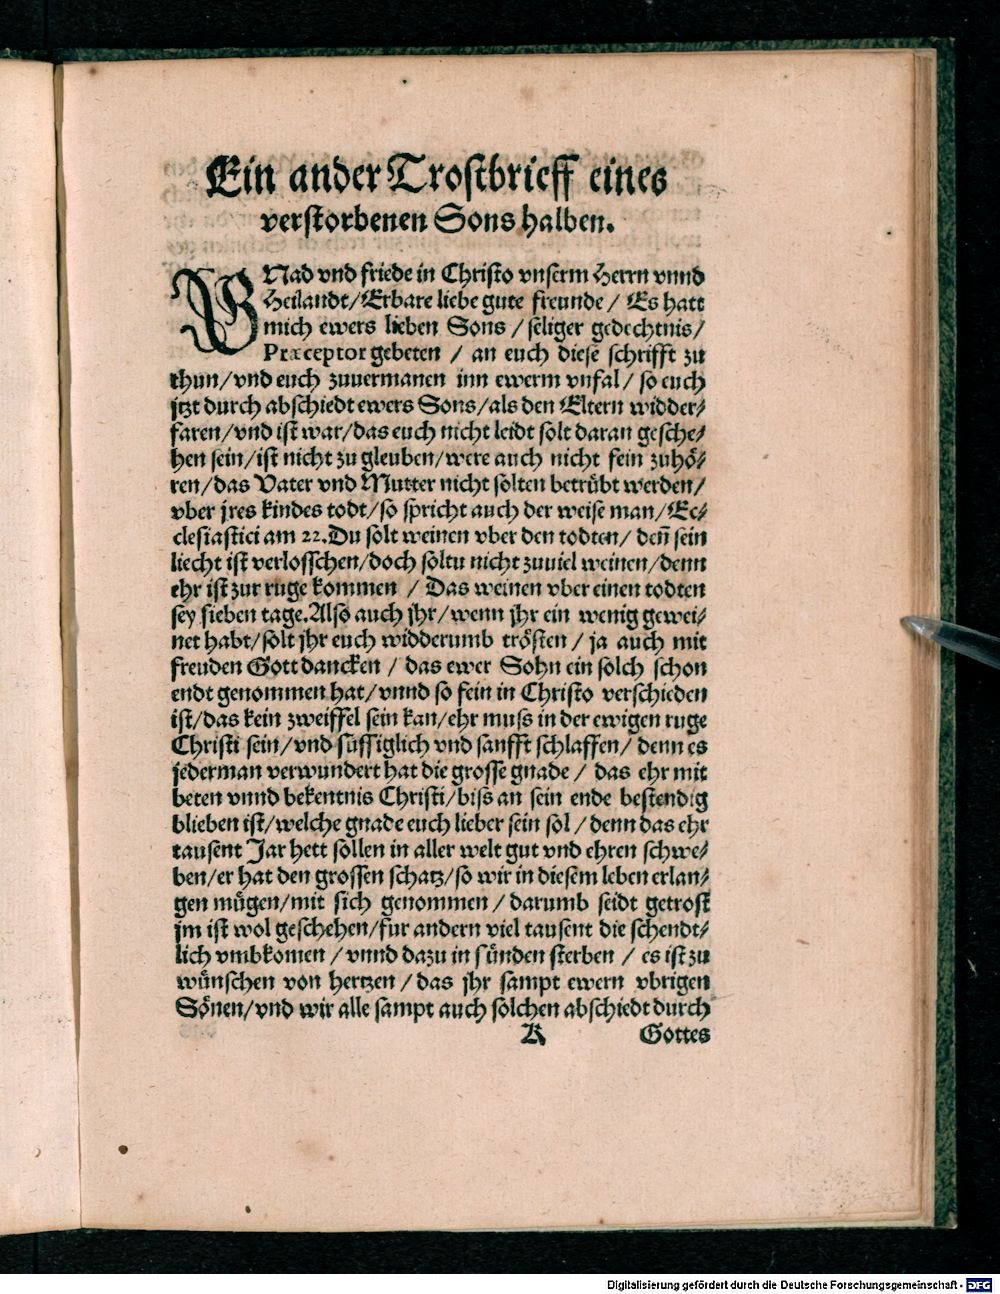 Ein ander Trostbrieff eines
verstorbenen Sons halben.
GNad vnd friede in Christo vnserm Herrn vnnd
Heilandt/Erbare liebe gute freunde/ Es hatt
mich ewers lieben Sons /seliger gedechtnis/
Præceptor gebeten / an euch diese schrifft zu
thun/vnd euch zuuermanen inn ewerm vnfal/ so euch
jtzt durch abschiedt ewers Sons/als den Eltern widder⸗
faren/vnd ist war/das euch nicht leidt solt daran gesche⸗
hen sein/ist nicht zu gleuben/were auch nicht fein zuhö⸗
ren/das Vater vnd Mutter nicht solten betrübt werden/
vber jres kindes todt/so spricht auch der weise man/Ec⸗
clesiastici am 22.Du solt weinen vber den todten/ den̄ sein
liecht ist verlosschen/doch soltu nicht zuuiel weinen/denn
ehr ist zur ruge kommen / Das weinen vber einen todten
sey sieben tage.Also auch jhr/wenn jhr ein wenig gewei⸗
net habt/solt jhr euch widderumb trösten / ja auch mit
freuden Gott dancken / das ewer Sohn ein solch schon
endt genommen hat/vnnd so fein in Christo verschieden
ist/das kein zweiffel sein kan/ehr muss in der ewigen ruge
Christi sein/vnd süssiglich vnd sanfft schlaffen/ denn es
jederman verwundert hat die grosse gnade / das ehr mit
beten vnnd bekentnis Christi/biss an sein ende bestendig
blieben ist/welche gnade euch lieber sein sol / denn das ehr
tausent Jar hett sollen in aller welt gut vnd ehren schwe⸗
ben/er hat den grossen schatz/so wir in diesem leben erlan⸗
gen mügen/mit sich genommen / darumb seidt getrost
jm ist wol geschehen/fur andern viel tausent die schendt⸗
lich vmbkomen / vnnd dazu in sünden sterben / es ist zu
wünschen von hertzen / das jhr sampt ewern vbrigen
Sönen/vnd wir alle sampt auch solchen abschiedt durch
K Gottes
Digitalisierung gefördert durch die Deutsche Forschungsgemeinschaft - DFG